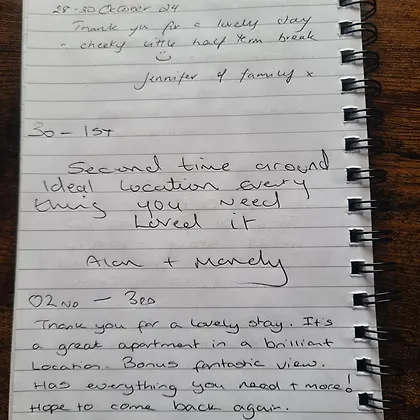 28-30 October '24
Thank you for a lovely stay
- cheeky little half term break
Jennifer & family x
30 - 1ST
Second time around
Ideal Location Every
thing you Need
Loved it
Alan + Mandy
02ND - 3RD
Thank you for a lovely stay. It's
a great apartment in a brilliant
Location. Bonus fantastic view.
Has everything you need + more!
Hope to come back again.